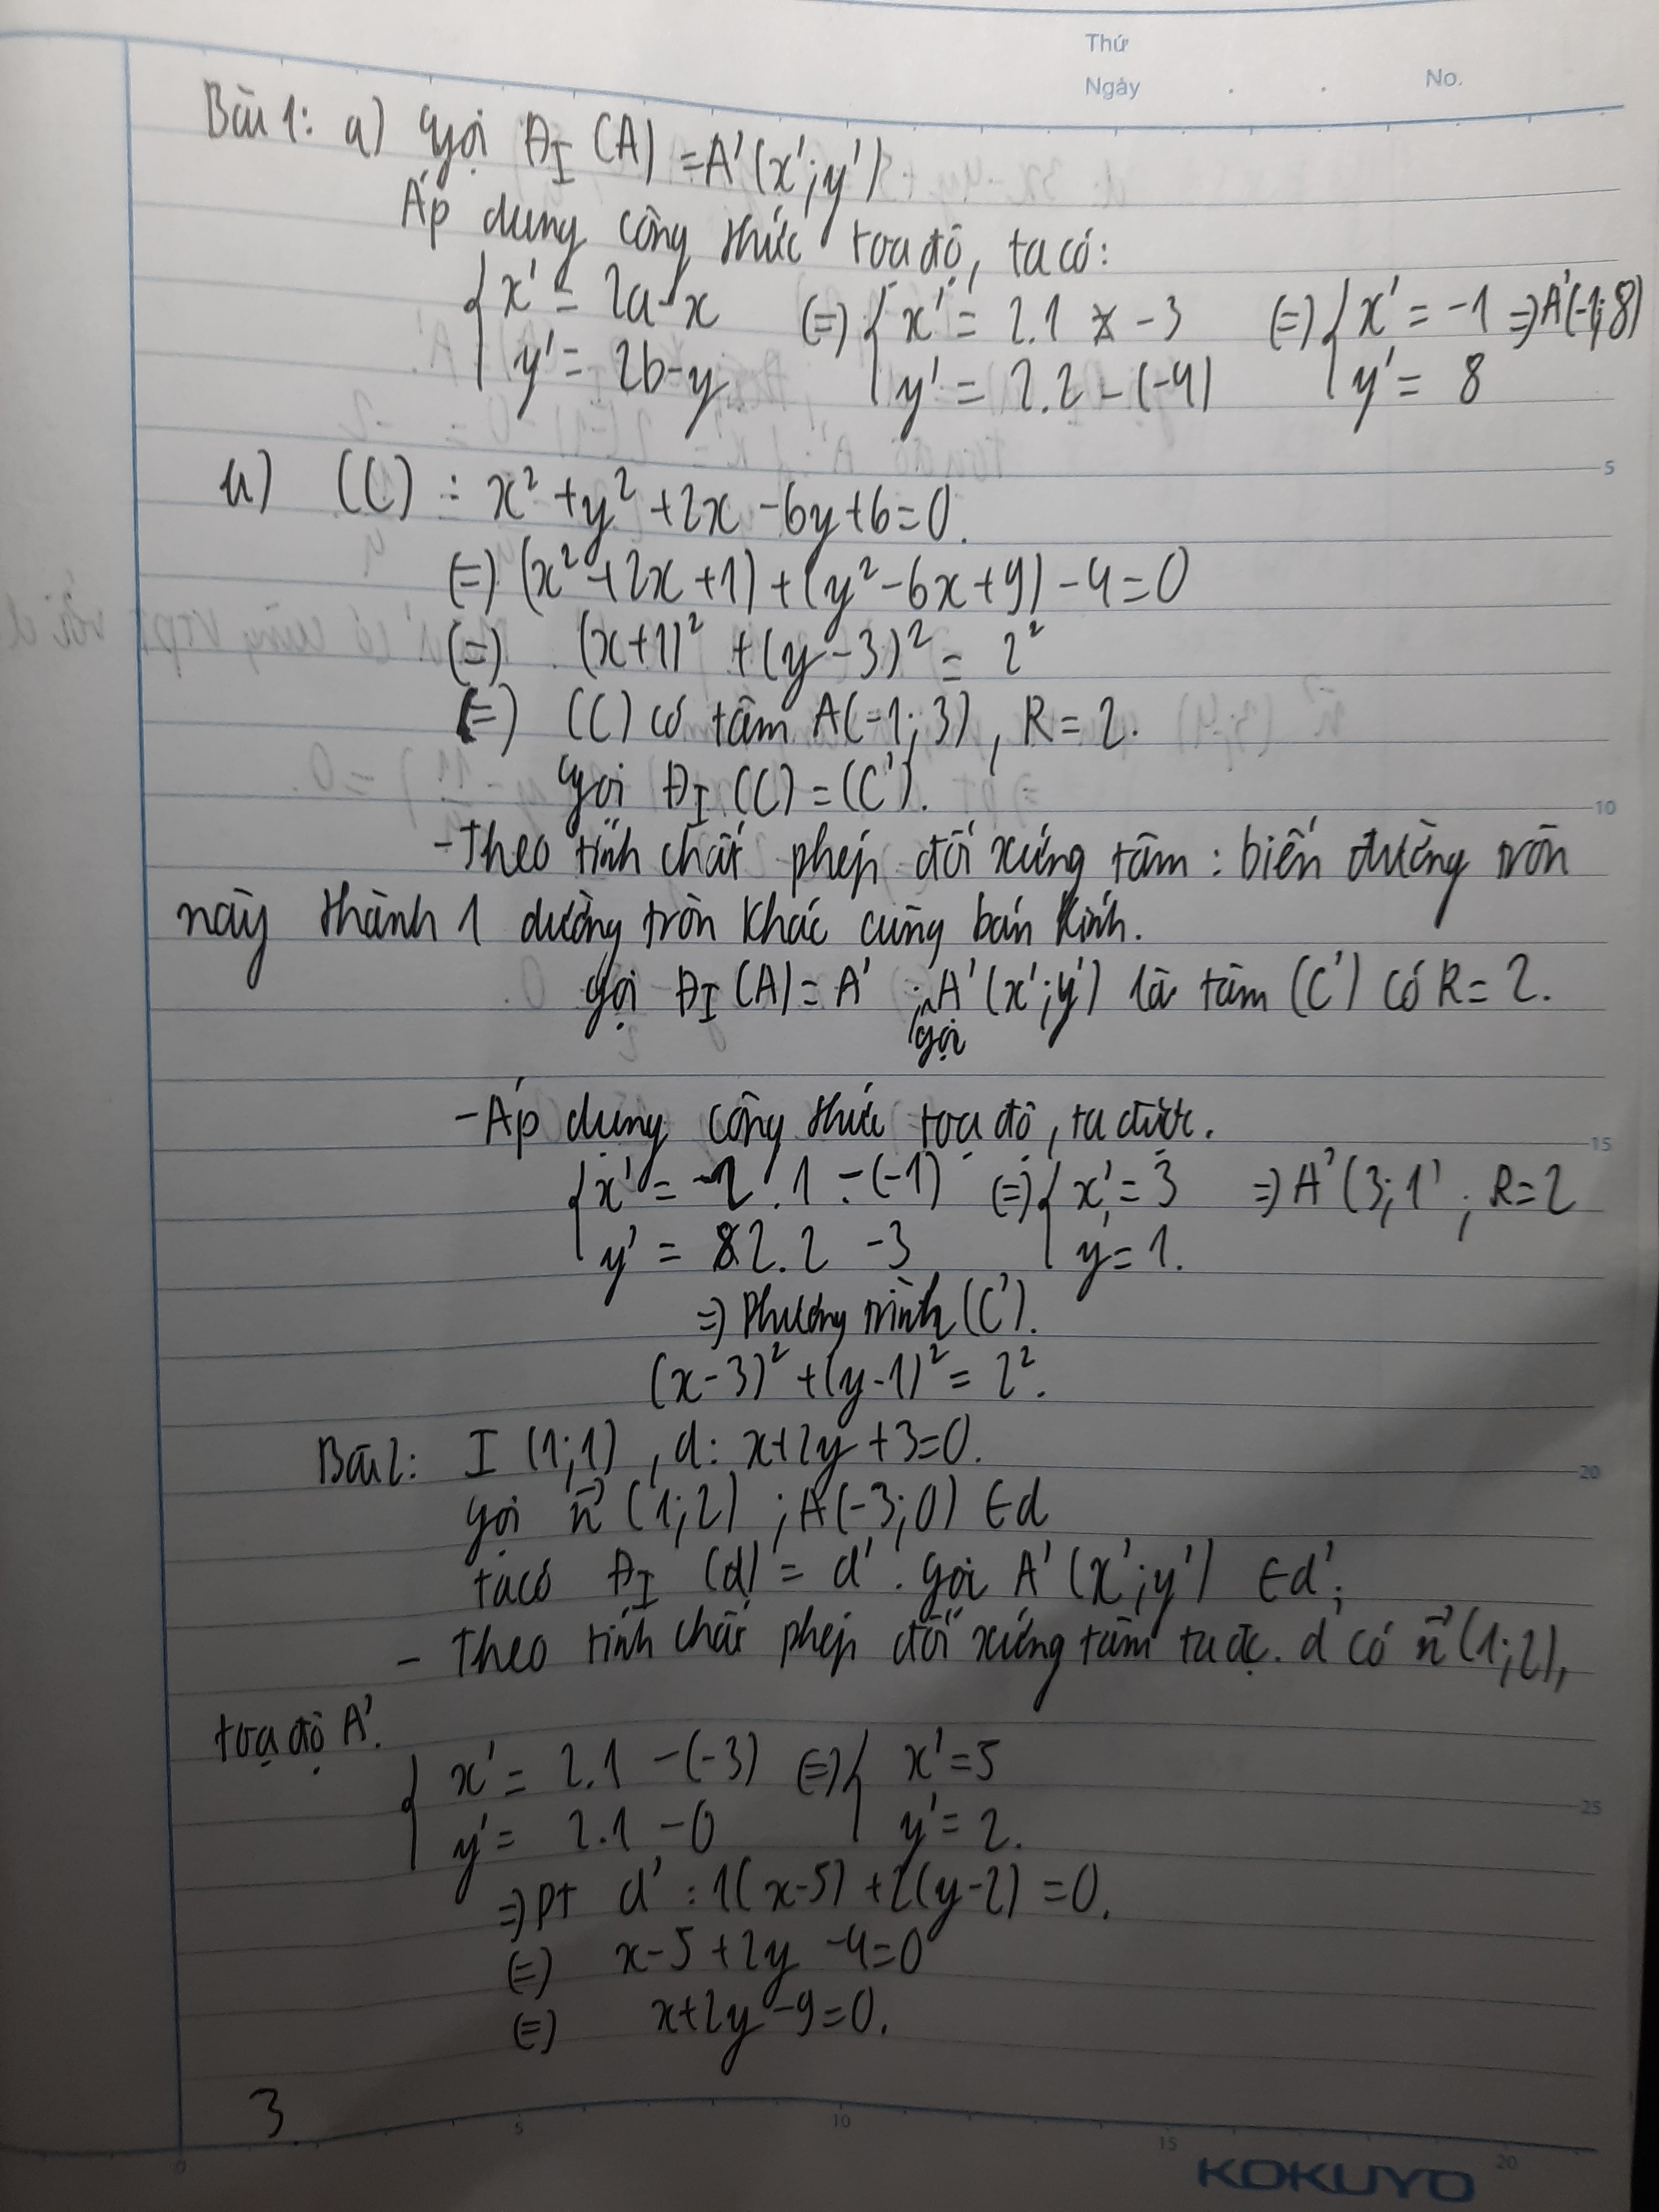 Thứ
Ngày . . No.
Bài 1: a) Gọi Đ_I (A) = A'(x';y')
Áp dụng công thức toạ độ, ta có:
{ x' = 2a - x (=) { x' = 2.1 - 3 (=) { x' = -1 => A'(-1;8)
y' = 2b - y y' = 2.2 - (-4) y' = 8
a) (C) : x² + y² + 2x - 6y + 6 = 0.
(=) (x² + 2x + 1) + (y² - 6x + 9) - 4 = 0
(=) (x+1)² + (y-3)² = 2²
(=) (C) có tâm A(-1; 3), R = 2.
Gọi Đ_I (C) = (C').
- Theo tính chất phép đối xứng tâm : biến đường tròn
này thành 1 đường tròn khác cùng bán kính.
Gọi Đ_I (A) = A' . A'(x';y') là tâm (C') có R = 2.
gọi
- Áp dụng công thức toạ độ, ta được.
{ x' = 2.1 - (-1) (=) { x' = 3 => A'(3;1) ; R = 2
y' = 2.2 - 3 y' = 1.
=> Phương trình (C').
(x-3)² + (y-1)² = 2².
Bài 2: I (1;1) , d: x+2y+3=0.
Gọi n⃗ (1;2) ; A(-3;0) ∈ d
ta có Đ_I (d) = d' . Gọi A' (x';y') ∈ d';
- Theo tính chất phép đối xứng tâm ta đc. d' có n⃗ (1;2),
toạ độ A'.
{ x' = 2.1 - (-3) (=) { x' = 5
y' = 2.1 - 0 y' = 2.
=> PT d' : 1(x-5) + 2(y-2) = 0.
(=) x - 5 + 2y - 4 = 0
(=) x + 2y - 9 = 0.
3
KOKUYO